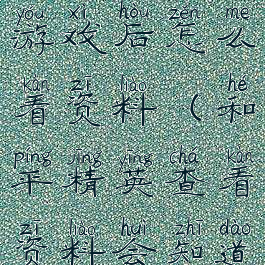 yóu xì hòu zěn me
游戏后怎么
kàn zī liào hé
看资料（和
píng jīng yīng chá kàn
平精英查看
zī liào huì zhī dào
资料会知道